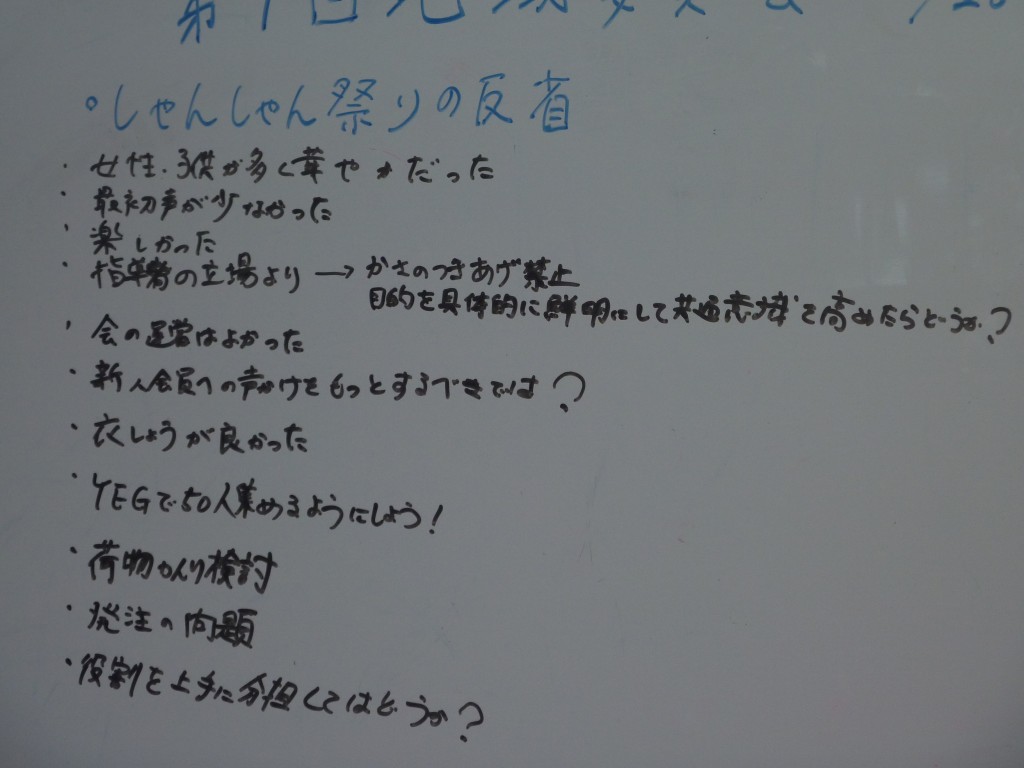 第1回
◦しゃんしゃん祭りの反省
・女性・子供が多く華やかだった
・最初声が少なかった
・楽しかった
・指導者の立場より → かさのつきあげ禁止
目的を具体的に鮮明にして共通意識を高めたらどうか?
・会の運営はよかった
・新入会員への声かけをもっとするべきでは?
・衣しょうが良かった
・YEGで50人集めるようにしよう!
・荷物かんり検討
・発注の問題
・役割を上手に分担してはどうか?